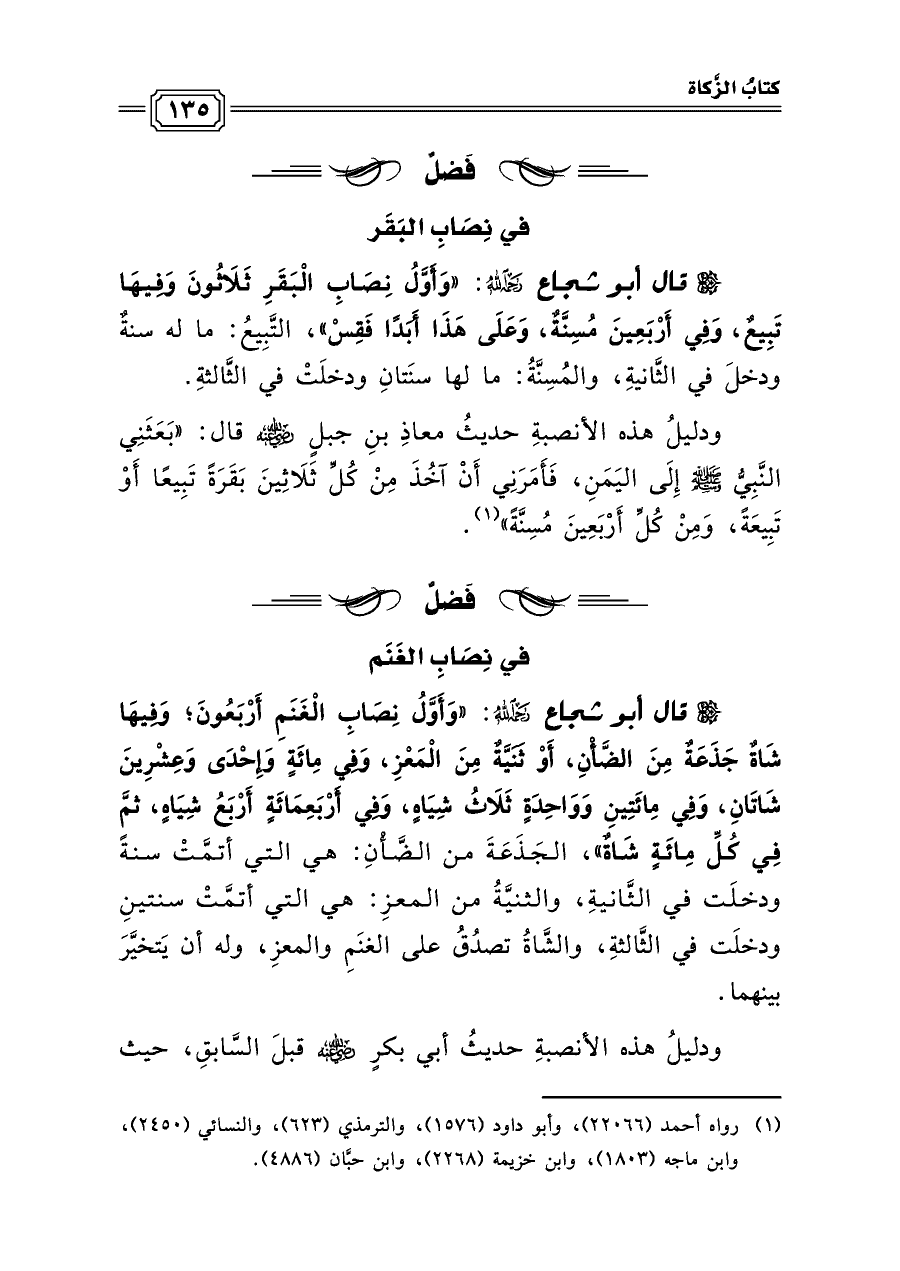 كتابُ الزَّكاة
١٣٥
فَصْلٌ
في نِصَابِ البَقَر
قال أبو شجاع رحمه الله: «وَأَوَّلُ نِصَابِ الْبَقَرِ ثَلَاثُونَ وَفِيهَا
تَبِيعٌ، وَفِي أَرْبَعِينَ مُسِنَّةٌ، وَعَلَى هَذَا أَبَدًا فَقِسْ»، التَّبِيعُ: ما له سنةٌ
ودخلَ في الثَّانيةِ، والمُسِنَّةُ: ما لها سنَتانِ ودخلَتْ في الثَّالثةِ.
ودليلُ هذه الأنصبةِ حديثُ معاذِ بنِ جبلٍ رضي الله عنه قال: «بَعَثَنِي
النَّبِيُّ ﷺ إِلَى اليَمَنِ، فَأَمَرَنِي أَنْ آخُذَ مِنْ كُلِّ ثَلَاثِينَ بَقَرَةً تَبِيعًا أَوْ
تَبِيعَةً، وَمِنْ كُلِّ أَرْبَعِينَ مُسِنَّةً»(١).
فَصْلٌ
في نِصَابِ الغَنَم
قال أبو شجاع رحمه الله: «وَأَوَّلُ نِصَابِ الْغَنَمِ أَرْبَعُونَ؛ وَفِيهَا
شَاةٌ جَذَعَةٌ مِنَ الضَّأْنِ، أَوْ ثَنَيَّةٌ مِنَ الْمَعْزِ، وَفِي مِائَةٍ وَإِحْدَى وَعِشْرِينَ
شَاتَانِ، وَفِي مِائَتِينِ وَوَاحِدَةٍ ثَلَاثُ شِيَاهٍ، وَفِي أَرْبَعِمَائَةٍ أَرْبَعُ شِيَاهٍ، ثمَّ
فِي كُلِّ مِائَةٍ شَاةٌ»، الجَذَعَةَ من الضَّأْنِ: هي التي أتمَّتْ سنةً
ودخلَت في الثَّانيةِ، والثنيَّةُ من المعزِ: هي التي أتمَّتْ سنتينِ
ودخلَت في الثَّالثةِ، والشَّاةُ تصدُقُ على الغنَمِ والمعزِ، وله أن يَتخيَّرَ
بينهما.
ودليلُ هذه الأنصبةِ حديثُ أبي بكرٍ رضي الله عنه قبلَ السَّابقِ، حيث
(١) رواه أحمد (٢٢٠٦٦)، وأبو داود (١٥٧٦)، والترمذي (٦٢٣)، والنسائي (٢٤٥٠)،
وابن ماجه (١٨٠٣)، وابن خزيمة (٢٢٦٨)، وابن حبَّان (٤٨٨٦).